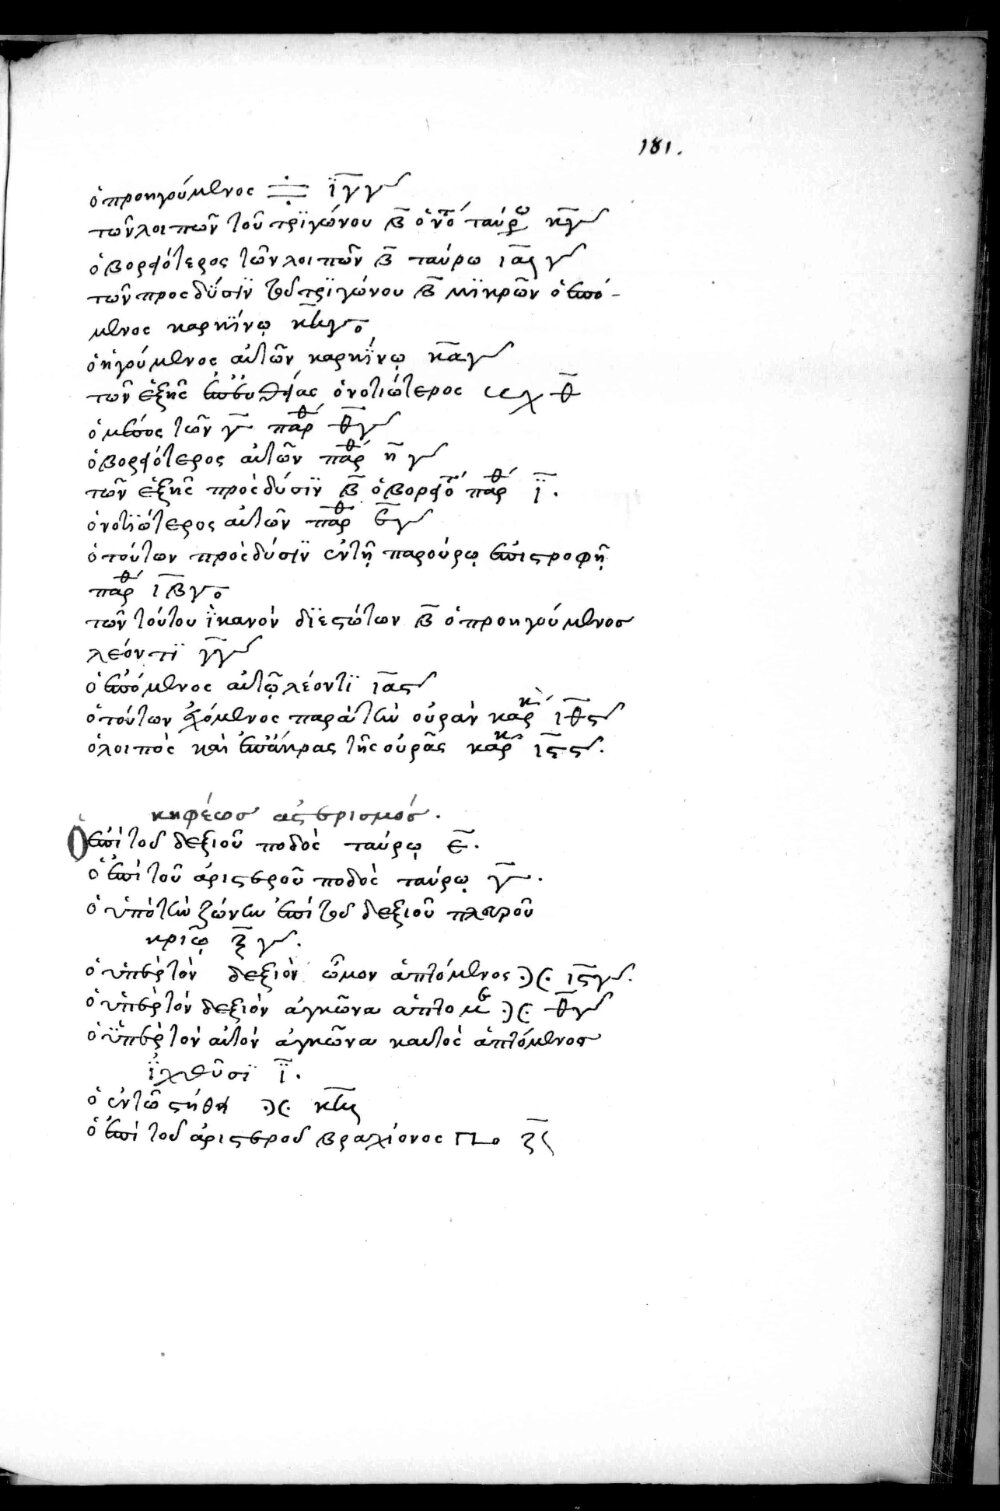 181.
ὁ προηγούμενος ιγ γ
τῶν λοιπῶν τοῦ τριγώνου β ὁ νο ταύρω κγ
ὁ βορϊότερος τῶν λοιπῶν β ταύρω ια γ
τῶν προς δύσιν τοῦ τριγώνου β μϊκρῶν ὁ ἑπό-
μενος καρκίνῳ
ὁ ἡγούμενος αὐτῶν καρκίνῳ κα γ
τῶν ἑξῆς ἐπ᾽ εὐθείας ὁ νοτιώτερος θ
ὁ μέσος τῶν γ παρ θ θ γ
ὁ βορϊότερος αὐτῶν παρ θ η γ
τῶν ἑξῆς πρὸς δύσϊν β ὁ βορ παρ θ ϊ.
ὁ νοτϊώτερος αὐτῶν παρ θ γ
ὁ τούτων πρὸς δύσϊν ἐν τῇ παρούρῳ ἐπιστροφῇ
παρ θ ιβ γο
τῶν τούτου ἱκανὸν διεστώτων β ὁ προηγούμενος
λέοντϊ γ γ
ὁ ἑπόμενος αὐτῷ λέοντϊ ια ς
ὁ τούτων ἐχόμενος παρὰ τὴν οὐρὰν καρ κ ιθ ς
ὁ λοιπὸς καὶ ἐπ᾽ ἄκρας τῆς οὐρᾶς καρ κ ις ς.
κηφέως ἀστερισμός.
Ὁ ἐπὶ τοῦ δεξιοῦ ποδὸς ταύρῳ ε.
ὁ ἐπὶ τοῦ ἀριστεροῦ ποδὸς ταύρῳ γ.
ὁ ὑπὸ τὴν ζώνην ἐπὶ τοῦ δεξιοῦ πλευροῦ
κριῷ ζ γ.
ὁ ὑπὲρ τὸν δεξιὸν ὦμον ἁπτόμενος )( ις γ.
ὁ ὑπὲρ τὸν δεξιὸν ἀγκῶνα ἁπτομε )( θ γ
ὁ ὑπὲρ τὸν αὐτὸν ἀγκῶνα καυτὸς ἁπτόμενος
ϊχθῦσϊ ϊ.
ὁ ἐν τῷ στήθει )(
ὁ ἐπὶ τοῦ ἀριστεροῦ βραχίονος ζ